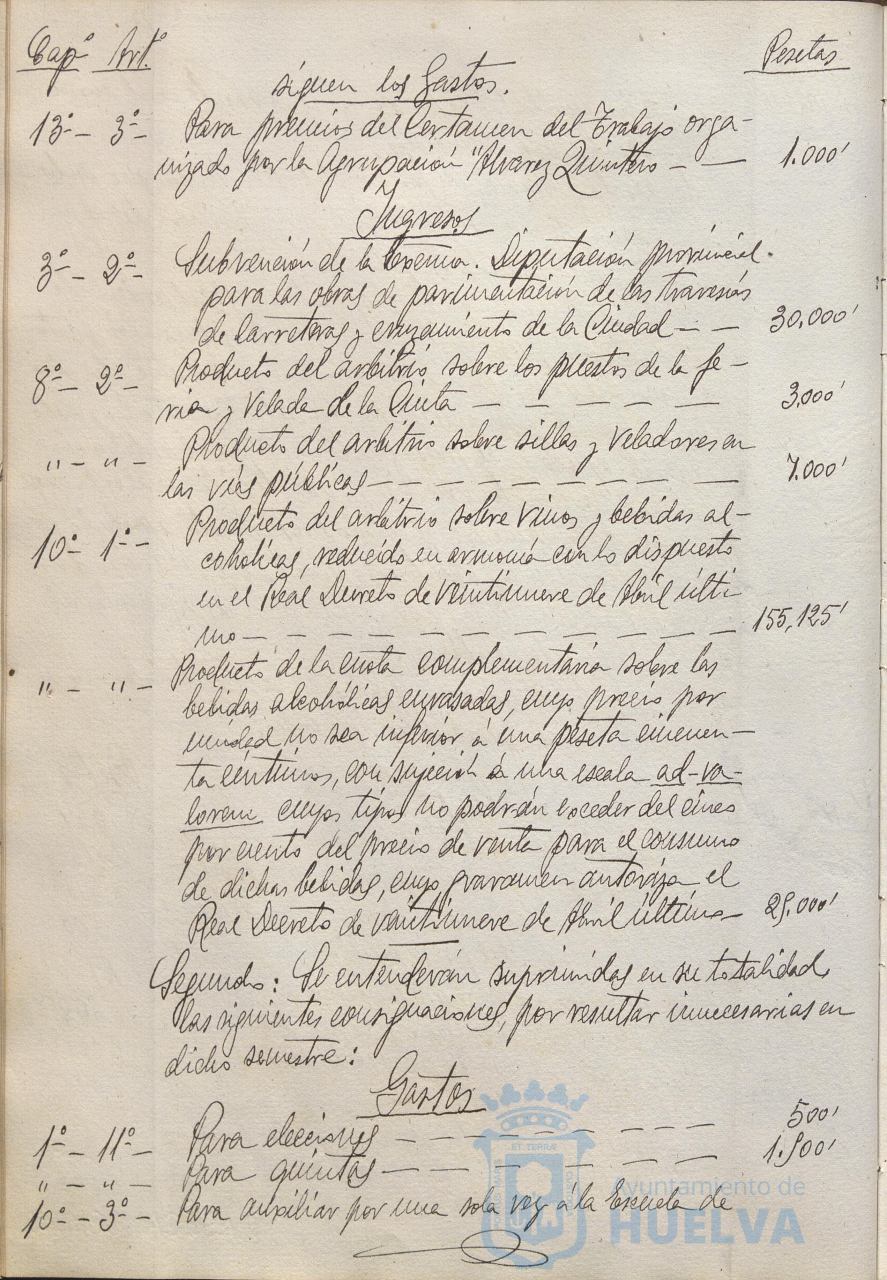 Capº Artº Pesetas
siguen los Gastos.
13º - 3º - Para premios del Certamen del Trabajo orga-
nizado por la Agrupación "Alvarez Quintero - - 1.000'
Ingresos
3º - 2º - Subvención de la Excma. Diputación provincial
para las obras de pavimentación de las travesías
de carreteras y cruzamiento de la Ciudad - - 30,000'
8º - 2º - Producto del arbitrio sobre los puestos de la fe-
ria y Velada de la Cinta - - - - - 3,000'
" - " - Producto del arbitrio sobre sillas y veladores en
las vías públicas - - - - - - - - - 7.000'
10º - 1º - Producto del arbitrio sobre vinos y bebidas al-
cohólicas, reducido en armonía con lo dispuesto
en el Real Decreto de veintinueve de Abril últi
mo - - - - - - - - - - - 155,125'
" - " - Producto de la cuota complementaria sobre las
bebidas alcohólicas envasadas, cuyo precio por
unidad no sea inferior á una peseta cincuen-
ta céntimos, con sujeción á una escala ad-va-
lorem cuyos tipos no podrán exceder del cinco
por ciento del precio de venta para el consumo
de dichas bebidas, cuyo gravamen autoriza el
Real Decreto de veintinueve de Abril último - 25.000'
Segundo: Se entenderán suprimidas en su totalidad,
las siguientes consignaciones, por resultar innecesarias en
dicho semestre:
Gastos
1º - 11º - Para elecciones - - - - - - - 500'
" - " - Para quintas - - - - - - - 1.500'
10º - 3º - Para auxiliar por una sola vez á la Escuela de
Ayuntamiento de
HUELVA